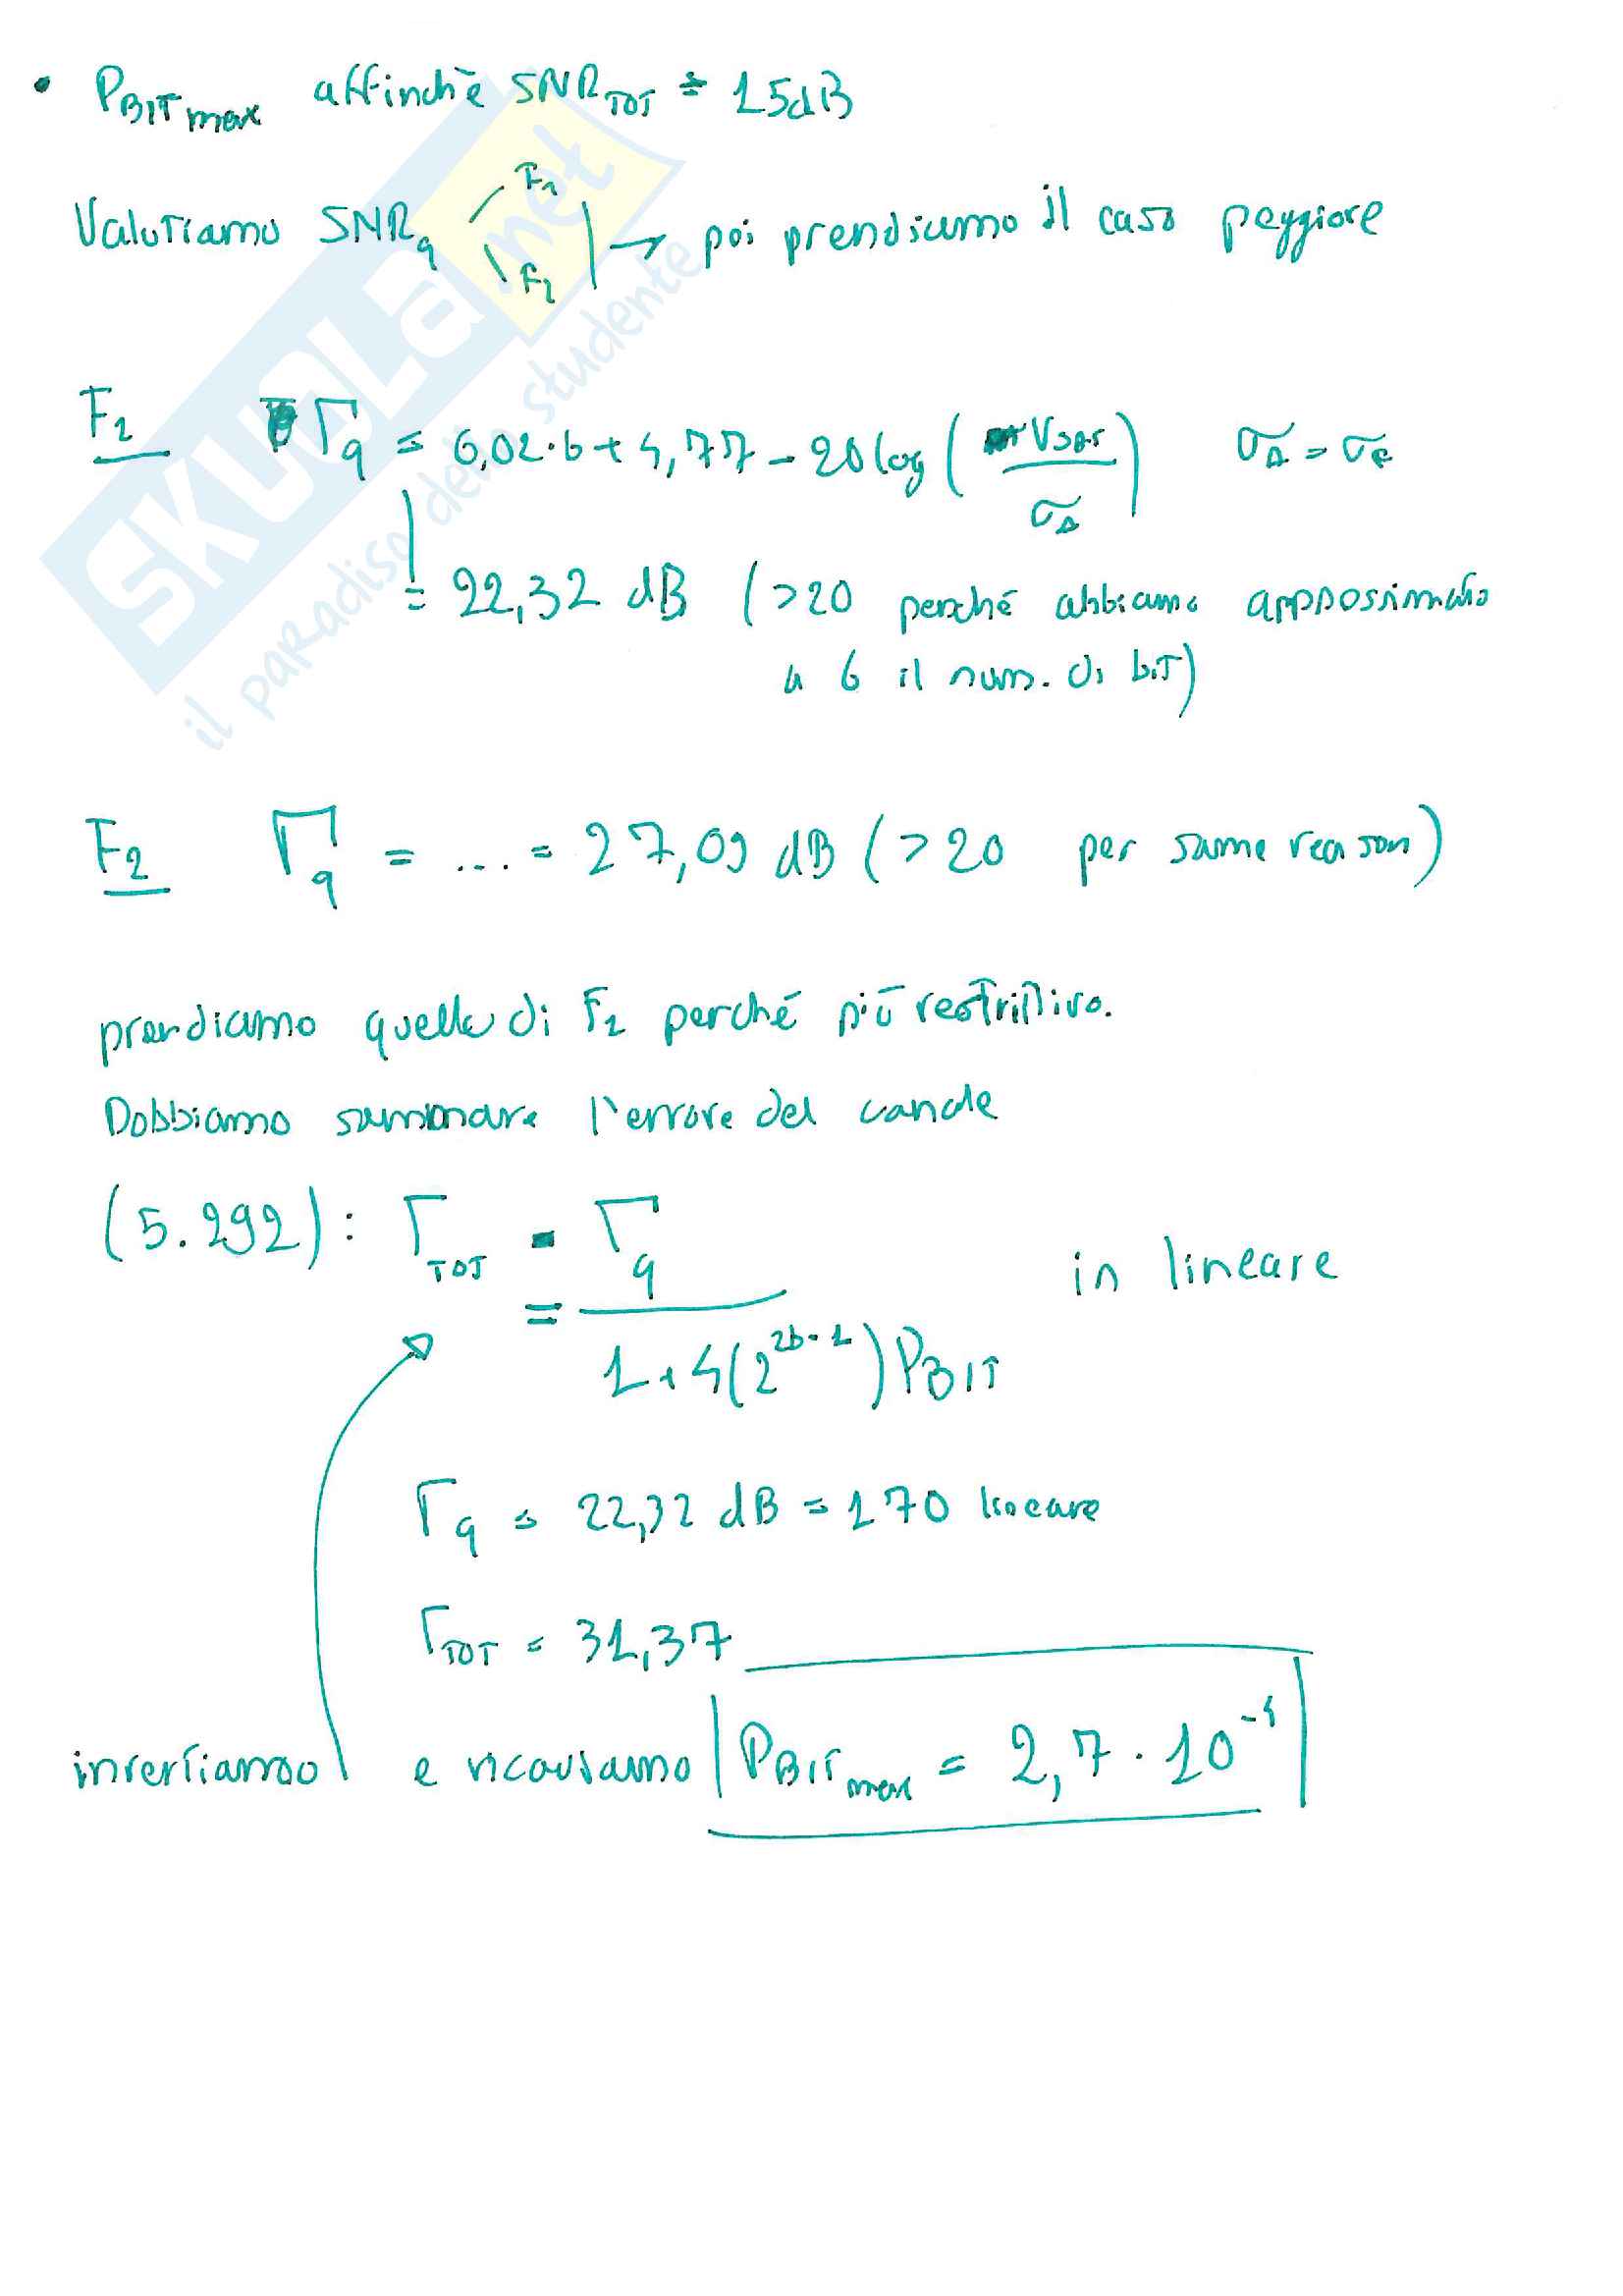 • P_BIT max affinchè SNR_TOT = 15dB
Valutiamo SNR_q F1 F2 → poi prendiamo il caso peggiore
F1 Γq = 6,02·6+4,77-20log(Vsat/σA) σA = σe
= 22,32 dB (>20 perché abbiamo approssimato
a 6 il num. di bit)
F2 Γq = ... = 27,09 dB (>20 per same reason)
prendiamo quello di F1 perché più restrittivo.
Dobbiamo sommare l'errore del canale
(5.292): Γ_TOT = Γq / (1+4(2^{2b-1})P_BIT) in lineare
Γq = 22,32 dB = 170 lineare
Γ_TOT = 31,37
invertiamo e ricaviamo P_BIT max = 2,7·10^{-4}
SKUOLA.net
il paradiso dello studente